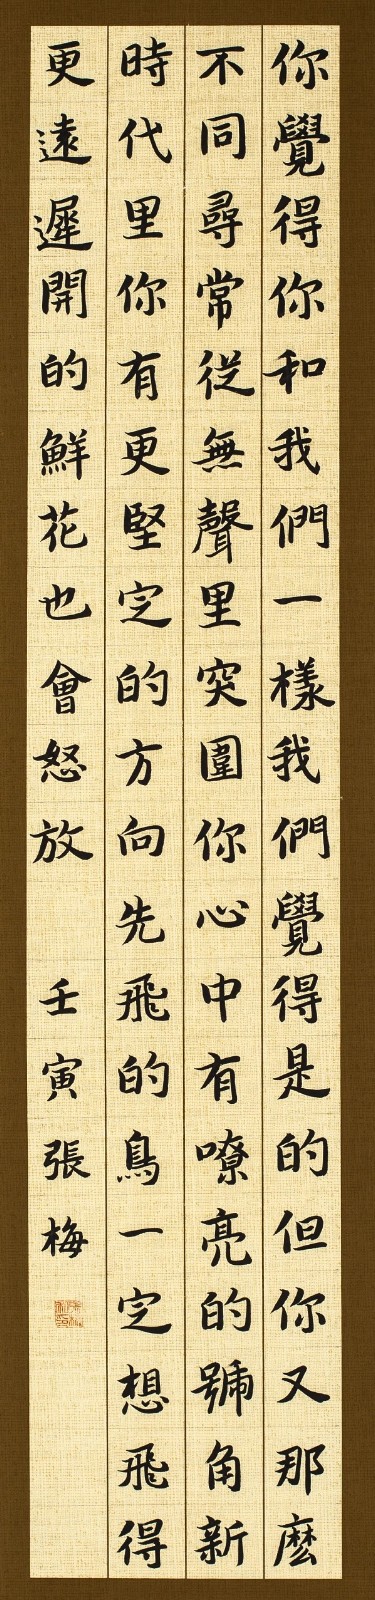 你覺得你和我們一樣我們覺得是的但你又那麽
不同尋常從無聲里突圍你心中有嘹亮的號角新
時代里你有更堅定的方向先飛的鳥一定想飛得
更遠遲開的鮮花也會怒放 壬寅張梅